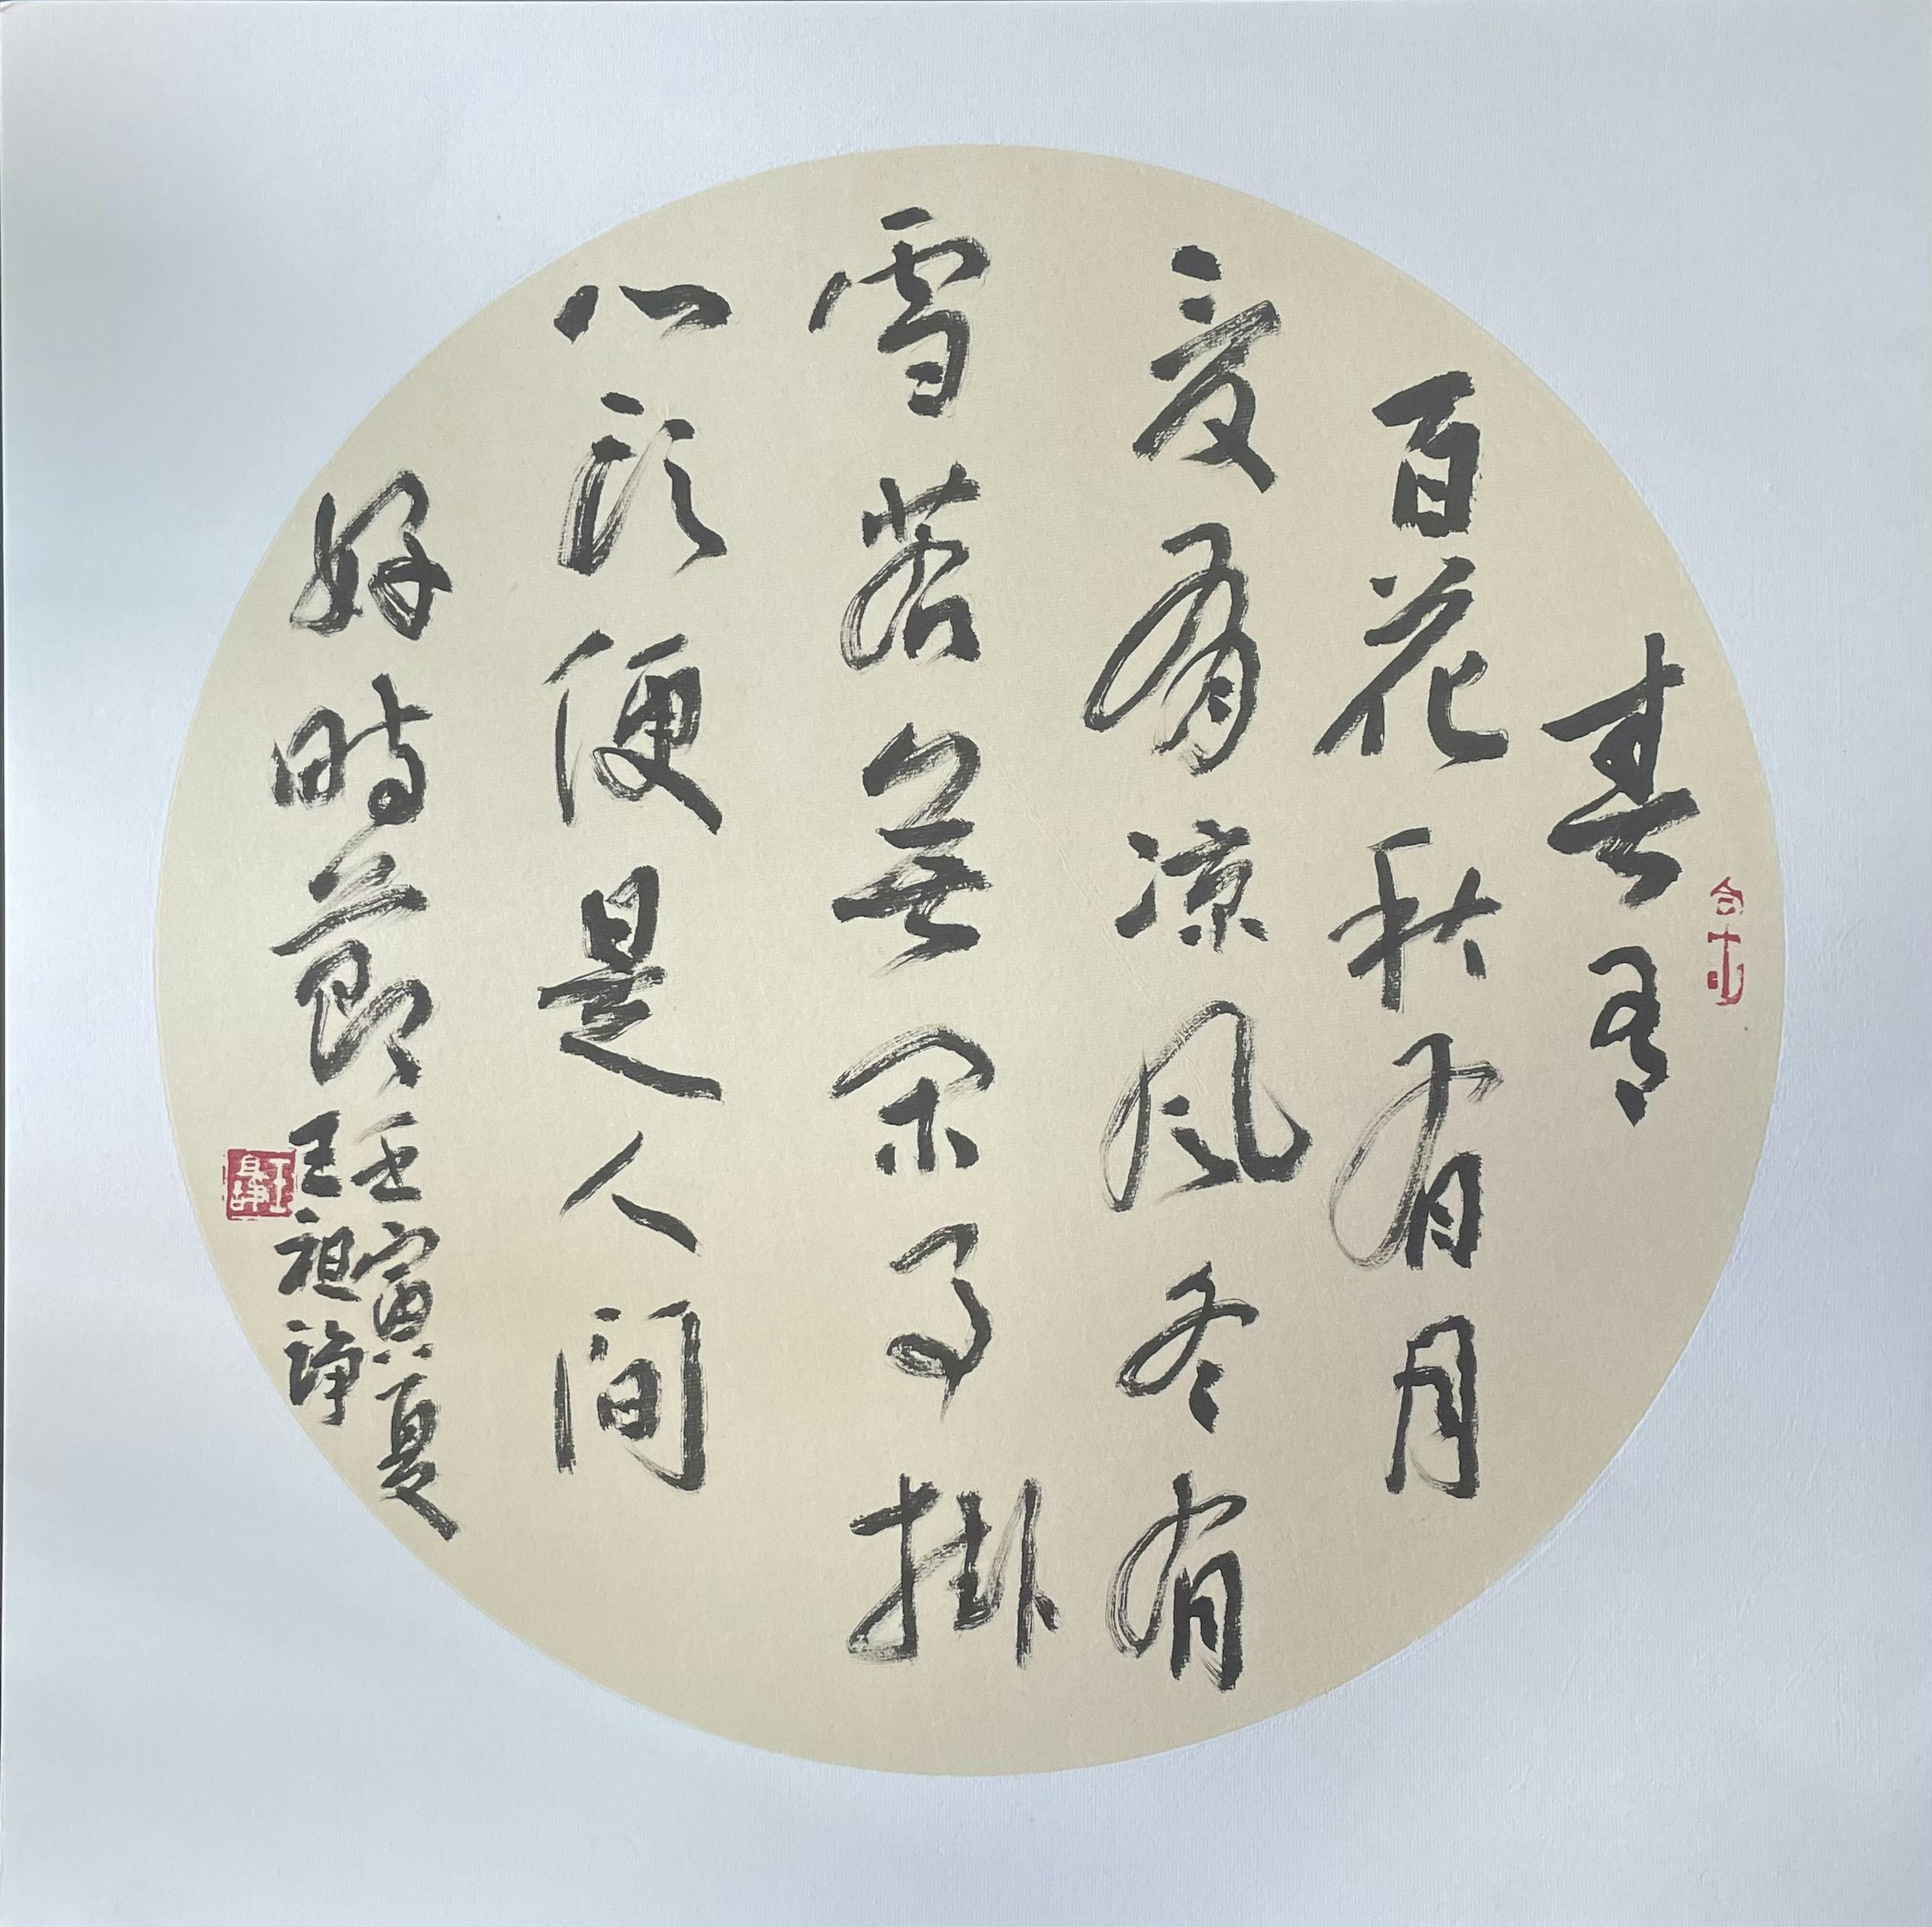 春有
百花秋有月
夏有凉风冬有
雪若無闲事掛
心頭便是人间
好時節
壬寅夏
王祖諍